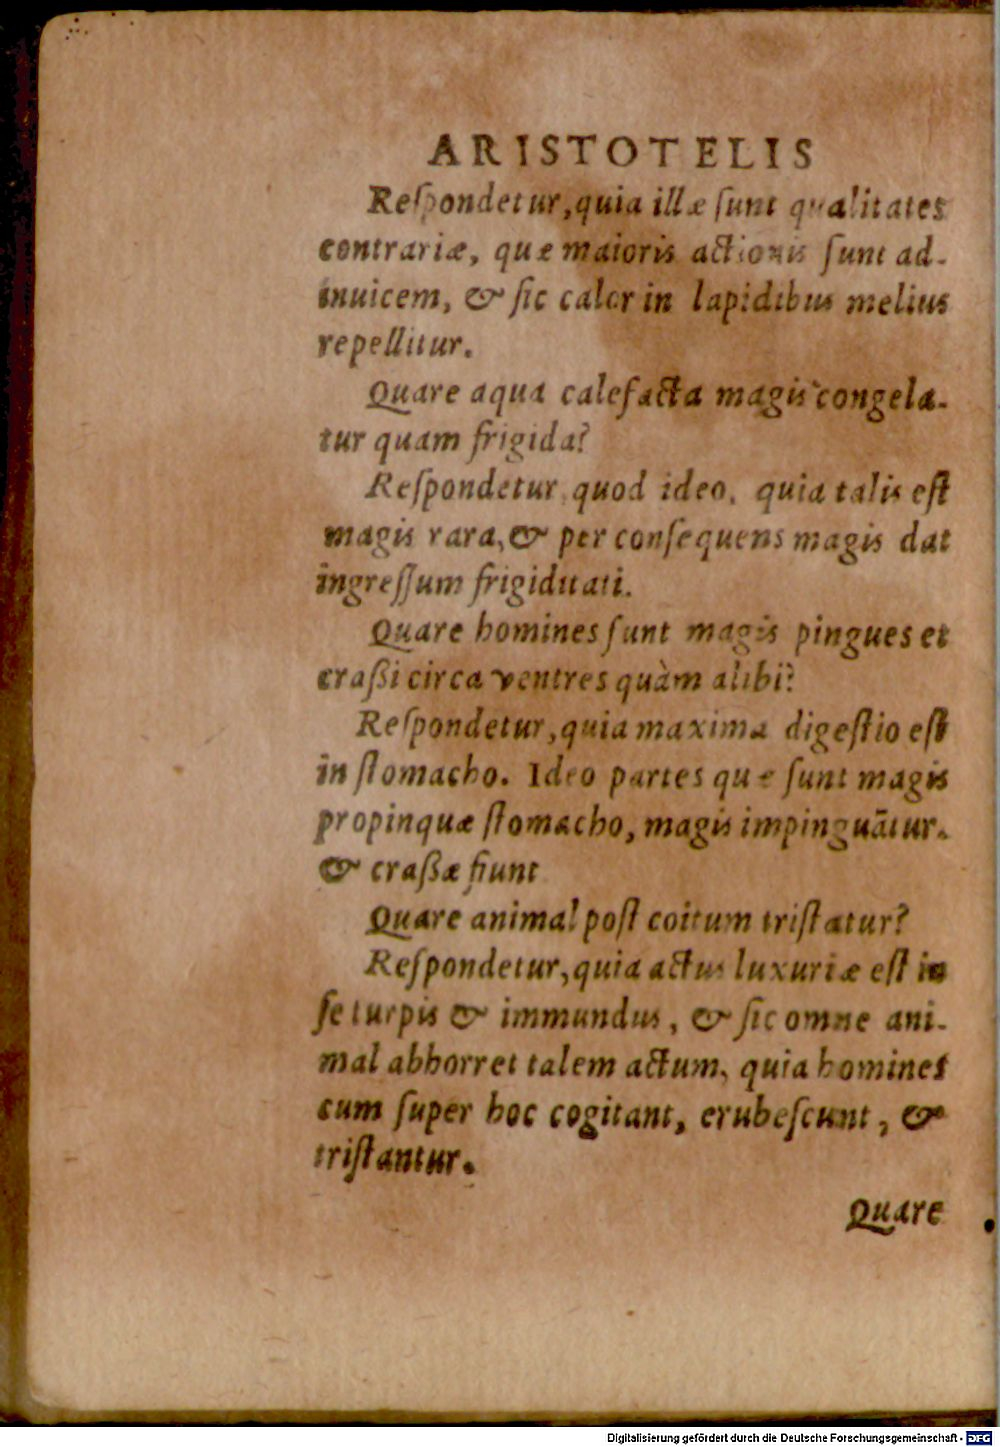 ARISTOTELIS
Reſpondetur, quia illæ ſunt qualitates
contrariæ, quæ maioris actionis ſunt ad-
inuicem, & ſic calor in lapidibus melius
repellitur.
Quare aqua calefacta magis congela-
tur quam frigida?
Reſpondetur quod ideo, quia talis eſt
magis rara, & per conſequens magis dat
ingreſſum frigiditati.
Quare homines ſunt magis pingues et
craßi circa ventres quàm alibi?
Reſpondetur, quia maxima digeſtio eſt
in ſtomacho. Ideo partes quæ ſunt magis
propinquæ ſtomacho, magis impinguātur.
& craßæ fiunt
Quare animal poſt coitum triſtatur?
Reſpondetur, quia actus luxuriæ eſt in
ſe turpis & immundus, & ſic omne ani-
mal abhorret talem actum, quia homines
cum ſuper hoc cogitant, erubeſcunt, &
triſtantur.
Quare
Digitalisierung gefördert durch die Deutsche Forschungsgemeinschaft - DFG